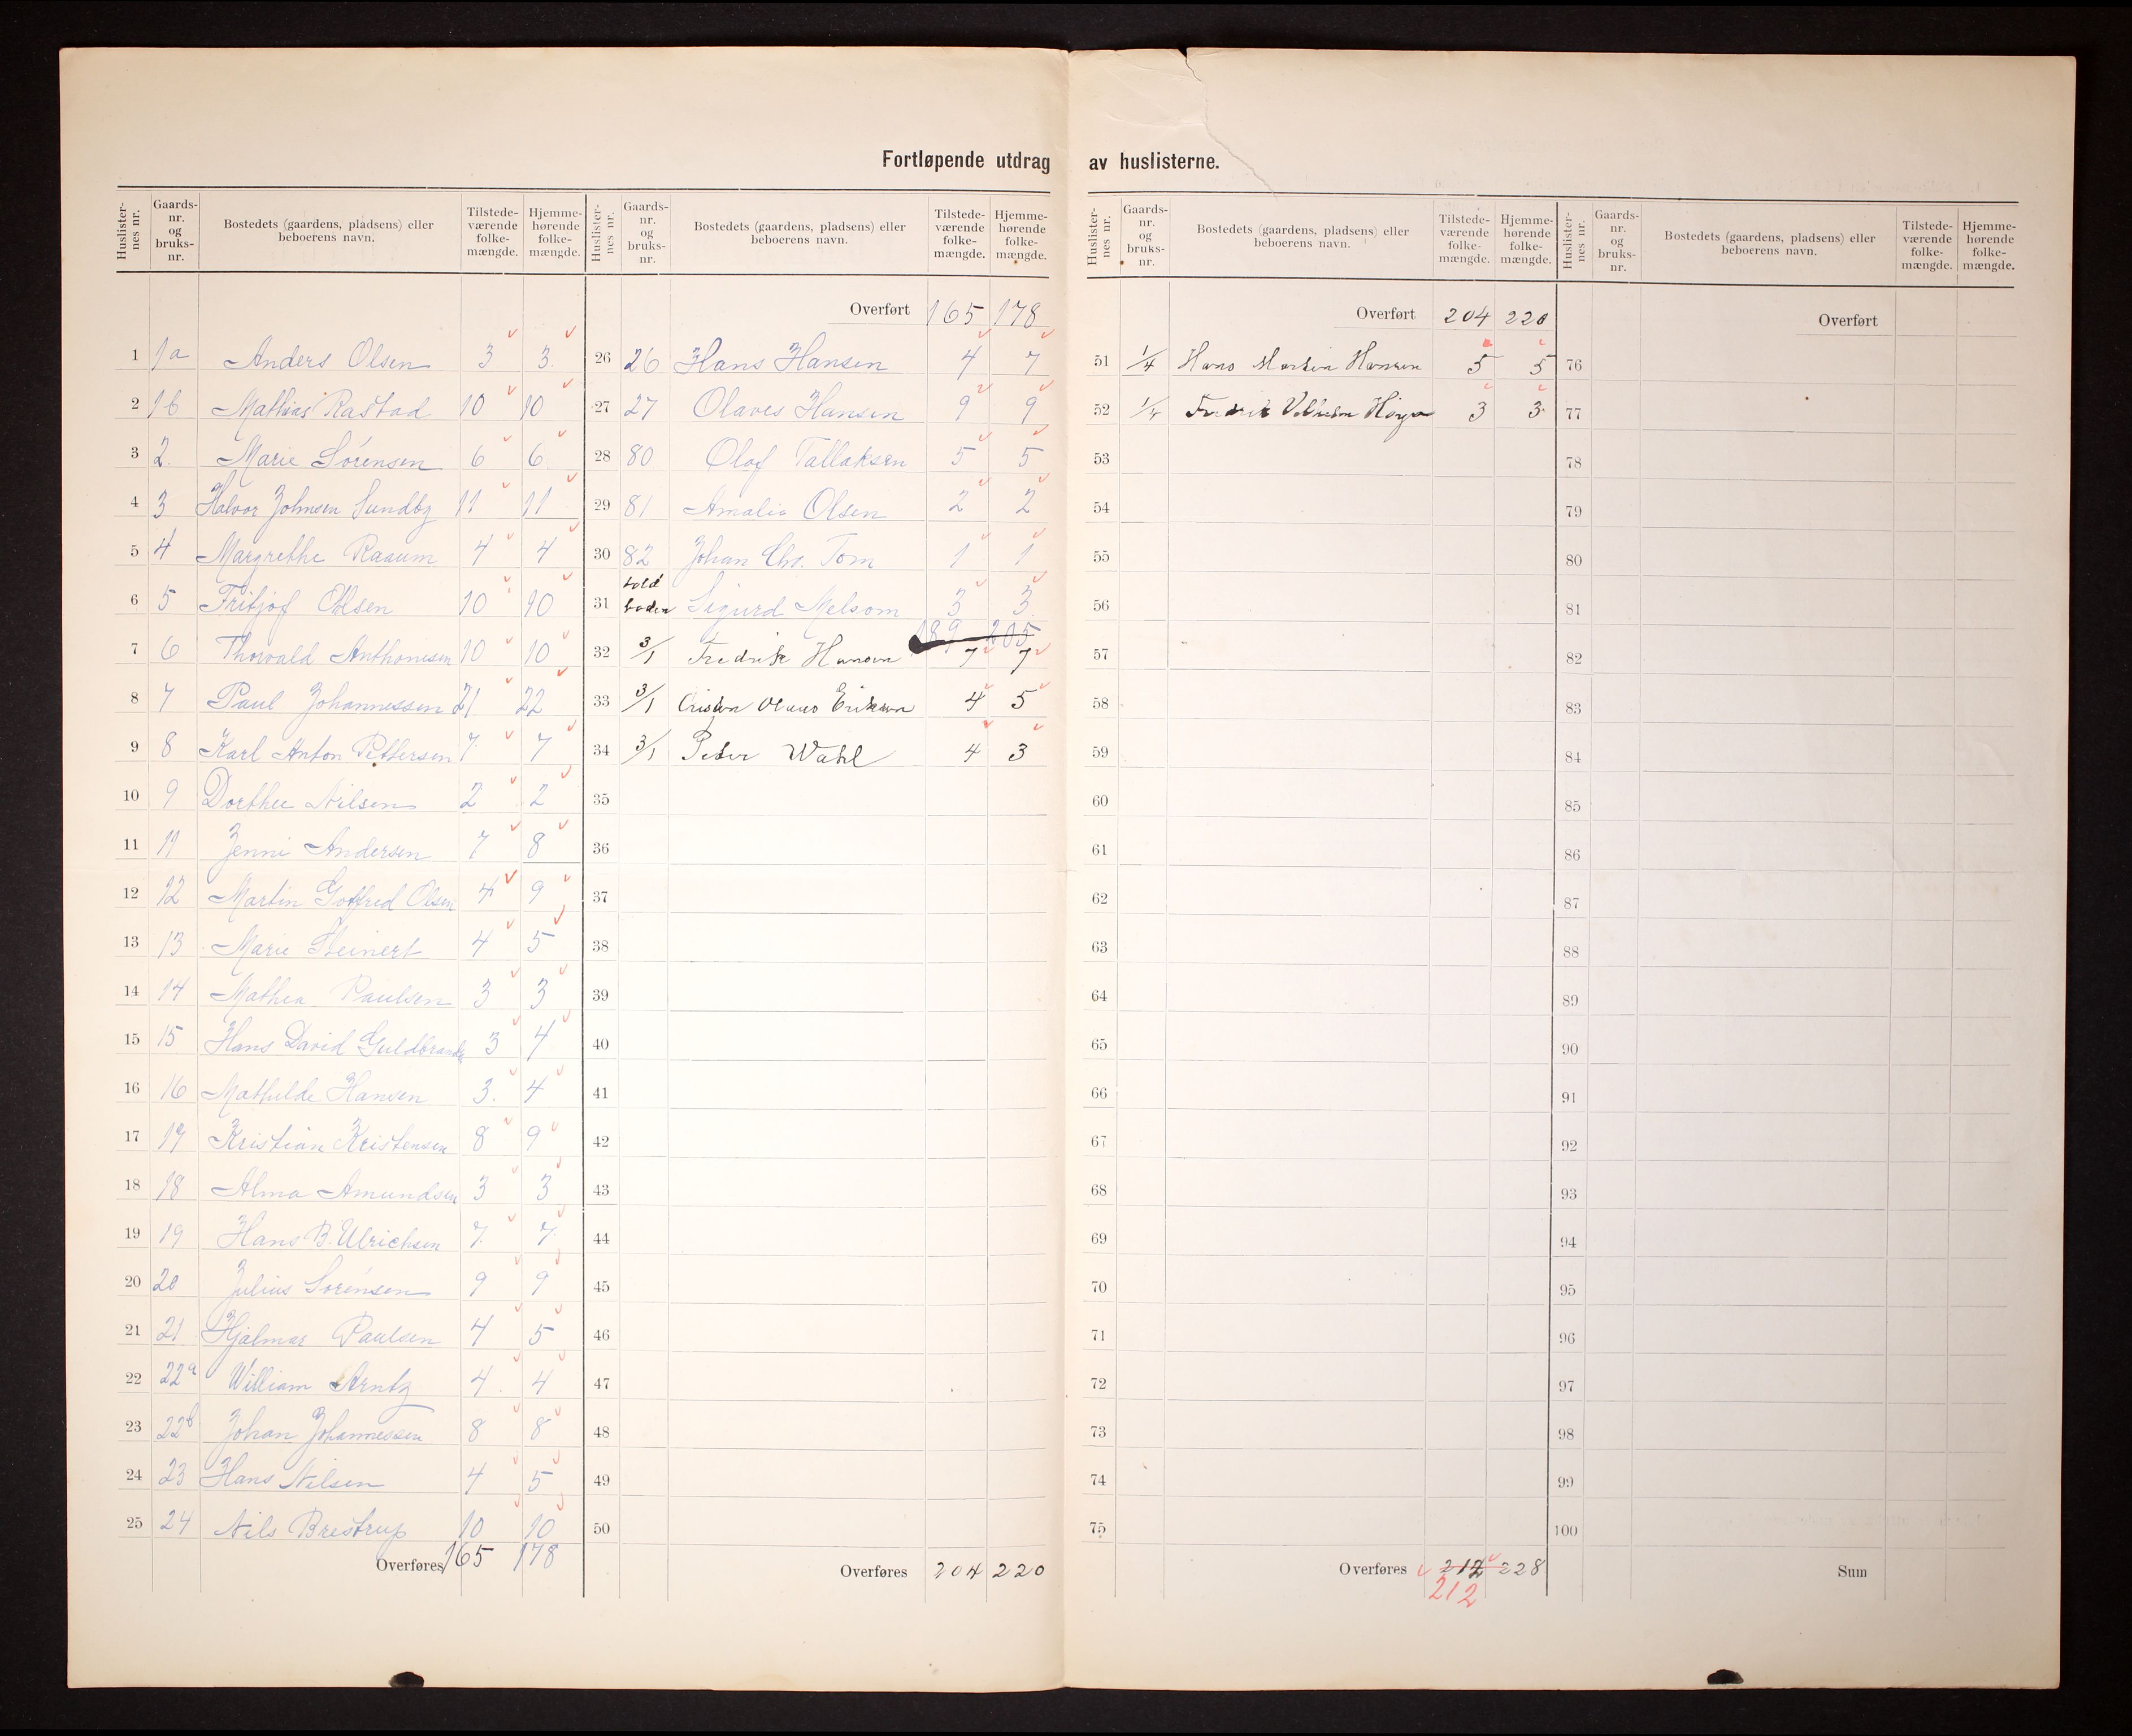 Fortløpende utdrag av huslisterne.
Huslister-nes nr. Gaards-nr. og bruks-nr. Bostedets (gaardens, pladsens) eller beboerens navn. Tilstede-værende folke-mængde. Hjemme-hørende folke-mængde.
1 1a Anders Olsen 3 3
2 1b Mathias Rastad 10 10
3 2. Marie Sörensen 6 6
4 3 Halvor Johnsen Sundby 11 11
5 4 Margrethe Raaum 4 4
6 5 Fritjof Olsen 10 10
7 6 Thorvald Anthonisen 10 10
8 7 Paul Johannessen 21 22
9 8 Karl Anton Pettersen 7 7
10 9 Dorthee Nilsen 2 2
11 11 Jenni Andersen 7 8
12 12 Martin Gotfred Olsen 4 9
13 13 Marie Steinert 4 5
14 14 Mathea Paulsen 3 3
15 15 Hans David Guldbrands 3 4
16 16 Mathilde Hansen 3. 4
17 17 Kristian Kristensen 8 9
18 18 Alma Amundsen 3 3
19 19 Hans B. Ulrichsen 7. 7.
20 20 Julius Sörensen 9 9
21 21 Hjalmar Paulsen 4 5
22 22a William Arntz 4 4
23 22b Johan Johannessen 8 8
24 23 Hans Nilsen 4 5
25 24 Nils Brestrup 10 10
Overføres 165 178
Huslister-nes nr. Gaards-nr. og bruks-nr. Bostedets (gaardens, pladsens) eller beboerens navn. Tilstede-værende folke-mængde. Hjemme-hørende folke-mængde.
Overført 165 178
26 26 Hans Hansen 4 7
27 27 Olaves Hansen 9 9
28 80 Olaf Tallaksen 5 5
29 81 Amalia Olsen 2 2
30 82 Johan Chr. Tom 1 1
31 told boden Sigurd Melsom 3 3
189 205
32 3/1 Fredrik Hansen 7 7
33 3/1 Olaus Eriksen 4 5
34 3/1 Peder Wahl 4 3
35
36
37
38
39
40
41
42
43
44
45
46
47
48
49
50
Overføres 204 220
Huslister-nes nr. Gaards-nr. og bruks-nr. Bostedets (gaardens, pladsens) eller beboerens navn. Tilstede-værende folke-mængde. Hjemme-hørende folke-mængde.
Overført 204 220
51 1/4 Hans Martin Hansen 5 5
52 1/4 Fredrik 3 3
53
54
55
56
57
58
59
60
61
62
63
64
65
66
67
68
69
70
71
72
73
74
75
Overføres 212 228
212
Huslister-nes nr. Gaards-nr. og bruks-nr. Bostedets (gaardens, pladsens) eller beboerens navn. Tilstede-værende folke-mængde. Hjemme-hørende folke-mængde.
Overført
76
77
78
79
80
81
82
83
84
85
86
87
88
89
90
91
92
93
94
95
96
97
98
99
100
Sum